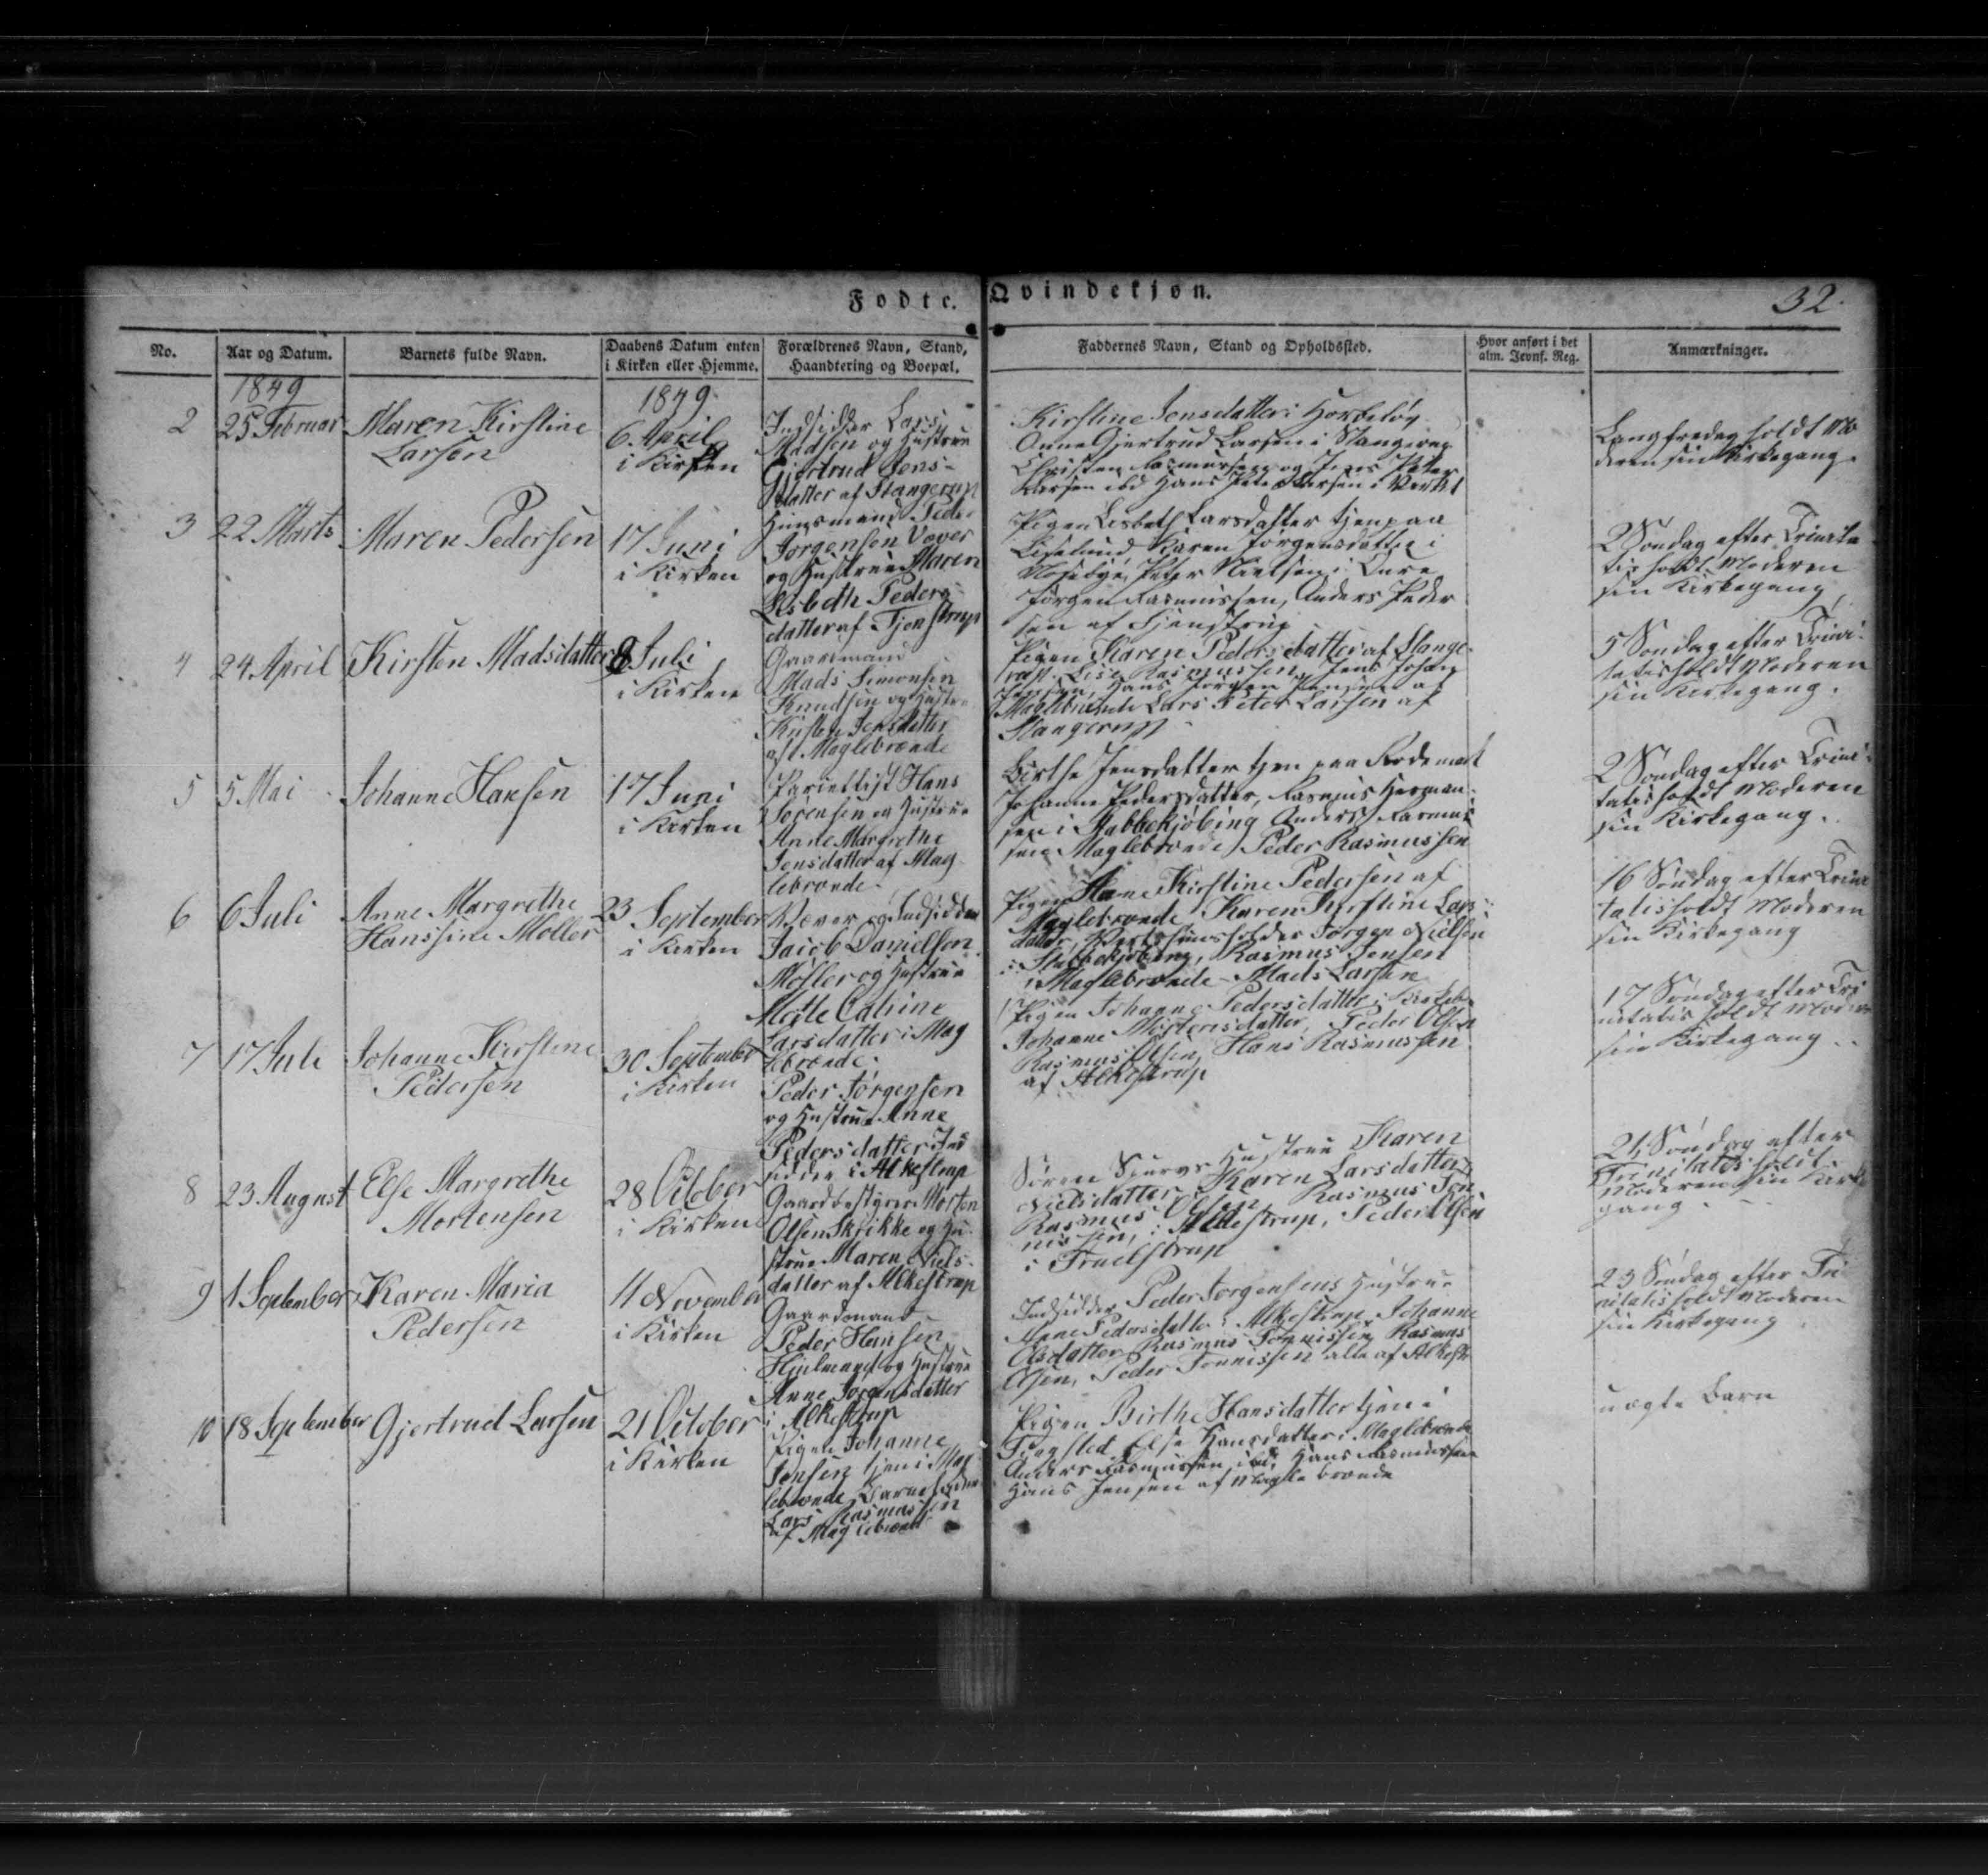 Fødte. Qvindekjøn.
32.
No.
Aar og Datum.
Barnets fulde Navn.
Daabens Datum enten
i Kirken eller Hjemme.
Forældrenes Navn, Stand,
Haandtering og Boepæl.
Faddernes Navn, Stand og Opholdssted.
Hvor anført i det
alm. Jevnf. Reg.
Anmærkninger.
1849
1849
2
25 Februar
Maren Kirstine
Larsen
6 April
i Kirken
Indsidder Lars
Madsen og Hustrue
Gjertrud Jens-
datter af Stangerup
Kirstine Jensdatter i Horbeløv
Anne Gjertrud Larsen i Stangerup
Christen Rasmussen og Jens Peter
Larsen ibd Hans Peter Larsen i
Langfredag holdt Mo
deren sin Kirkegang.
3
22 Marts
Maren Pedersen
17 Juni
i Kirken
Huusmand Peder
Jørgensen Væver
og Hustrue Maren
Lisbeth Peders-
datter af Tjenstrup
Pigen Lisbeth Larsdatter tjen paa
Liselund Karen Jørgensdatter i
Moseby, Peter Nielsen i Oure
Jørgen Rasmussen, Anders Peder
sen af Tjenstrup
2 Søndag efter Trinita
tis holdt Moderen
sin Kirkegang
4
24 April
Kirsten Madsdatter
8 Juli
i Kirken
Gaardmand
Mads Simonsen
Knudsen og Hustrue
Kirsten Jensdatter
af Maglebrænde
Pigen Karen Pedersdatter af Stange
rup. Lise Rasmussen, Jens Johan
Jensen, Hans Jørgen Jensen af
Maglebrænde Lars Peter Larsen af
Stangerup
5 Søndag efter Trini-
tatis holdt Moderen
sin Kirkegang.
5
5 Mai
Johanne Hansen
17 Juni
i Kirken
Hans
Sørensen og Hustrue
Anne Margrethe
Jensdatter af Mag
lebrænde.
Birthe Jensdatter tjen paa Rodemark
Johanne Pedersdatter, Rasmus Herman-
sen i Stubbekjøbing Anders Rasmus
sen Maglebrænde Peder Rasmussen
2 Søndag efter Trini-
tatis holdt Moderen
sin Kirkegang.
6
6 Juli
Anne Margrethe
Hanssine Møller
23 September
i Kirken
Væver og Indsidder
Jacob Danielsen
Møller og Hustrue
Mette Catrine
Larsdatter i Mag
lebrænde.
Pigen Hane Kirstine Pedersen af
Maglebrænde. Karen Kirstine Lars-
datter, Værtshuusholder Jørgen Nielsen
i Stubbekjøbing, Rasmus Jensen
i Maglebrænde - Mads Larsen
16 Søndag efter Trini
tatis holdt Moderen
sin Kirkegang
7
17 Juli
Johanne Kirstine
Pedersen
30 September
i Kirken
Peder Jørgensen
og Hustrue Anne
Pedersdatter Ind
sidder i Alkestrup
Pigen Johanne Pedersdatter i
Johanne Mortensdatter, Peder Olsen
Rasmus Olsen, Hans Rasmussen
af Alkestrup
17 Søndag efter Tri
nitatis holdt Moderen
sin Kirkegang.
8
23 August
Else Margrethe
Mortensen
28 October
i Kirken
Gaardbestyrer Morten
Olsen Skjikke og Hu-
strue Maren Niels-
datter af Alkestrup
Søren Hustrue Karen
Nielsdatter, Karen Larsdatter,
Rasmus Olsen, Rasmus Ton
nissen, i Alkestrup, Peder Olsen
i Truelstrup
21 Søndag efter
Trinitatis holdt
Moderen sin Kirke
gang.
9
1 September
Karen Maria
Pedersen
11 November
i Kirken
Gaardmand
Peder Hansen
Hjulmand og Hustrue
Anne Jørgensdatter
i Alkestrup
Indsidder Peder Jørgensens Hustrue
Anne Pedersdatter i Alkestrup, Johanne
Olsdatter Rasmus Tonnissen Rasmus
Olsen, Peder Tonnissen alle af Alkestr
23 Søndag efter Tri
nitatis holdt Moderen
sin Kirkegang
10
18 September
Gjertrud Larsen
21 October
i Kirken
Pigen Johanne
Jensen tjen i Mag
lebrænde Barnefader
Lars Rasmussen
af Maglebrænde
Pigen Birthe Hansdatter tjen i
Else Hansdatter i Maglebrænde
Anders Rasmussen ibd, Hans Rasmussen
Hans Jensen af Maglebrænde
uægte Barn